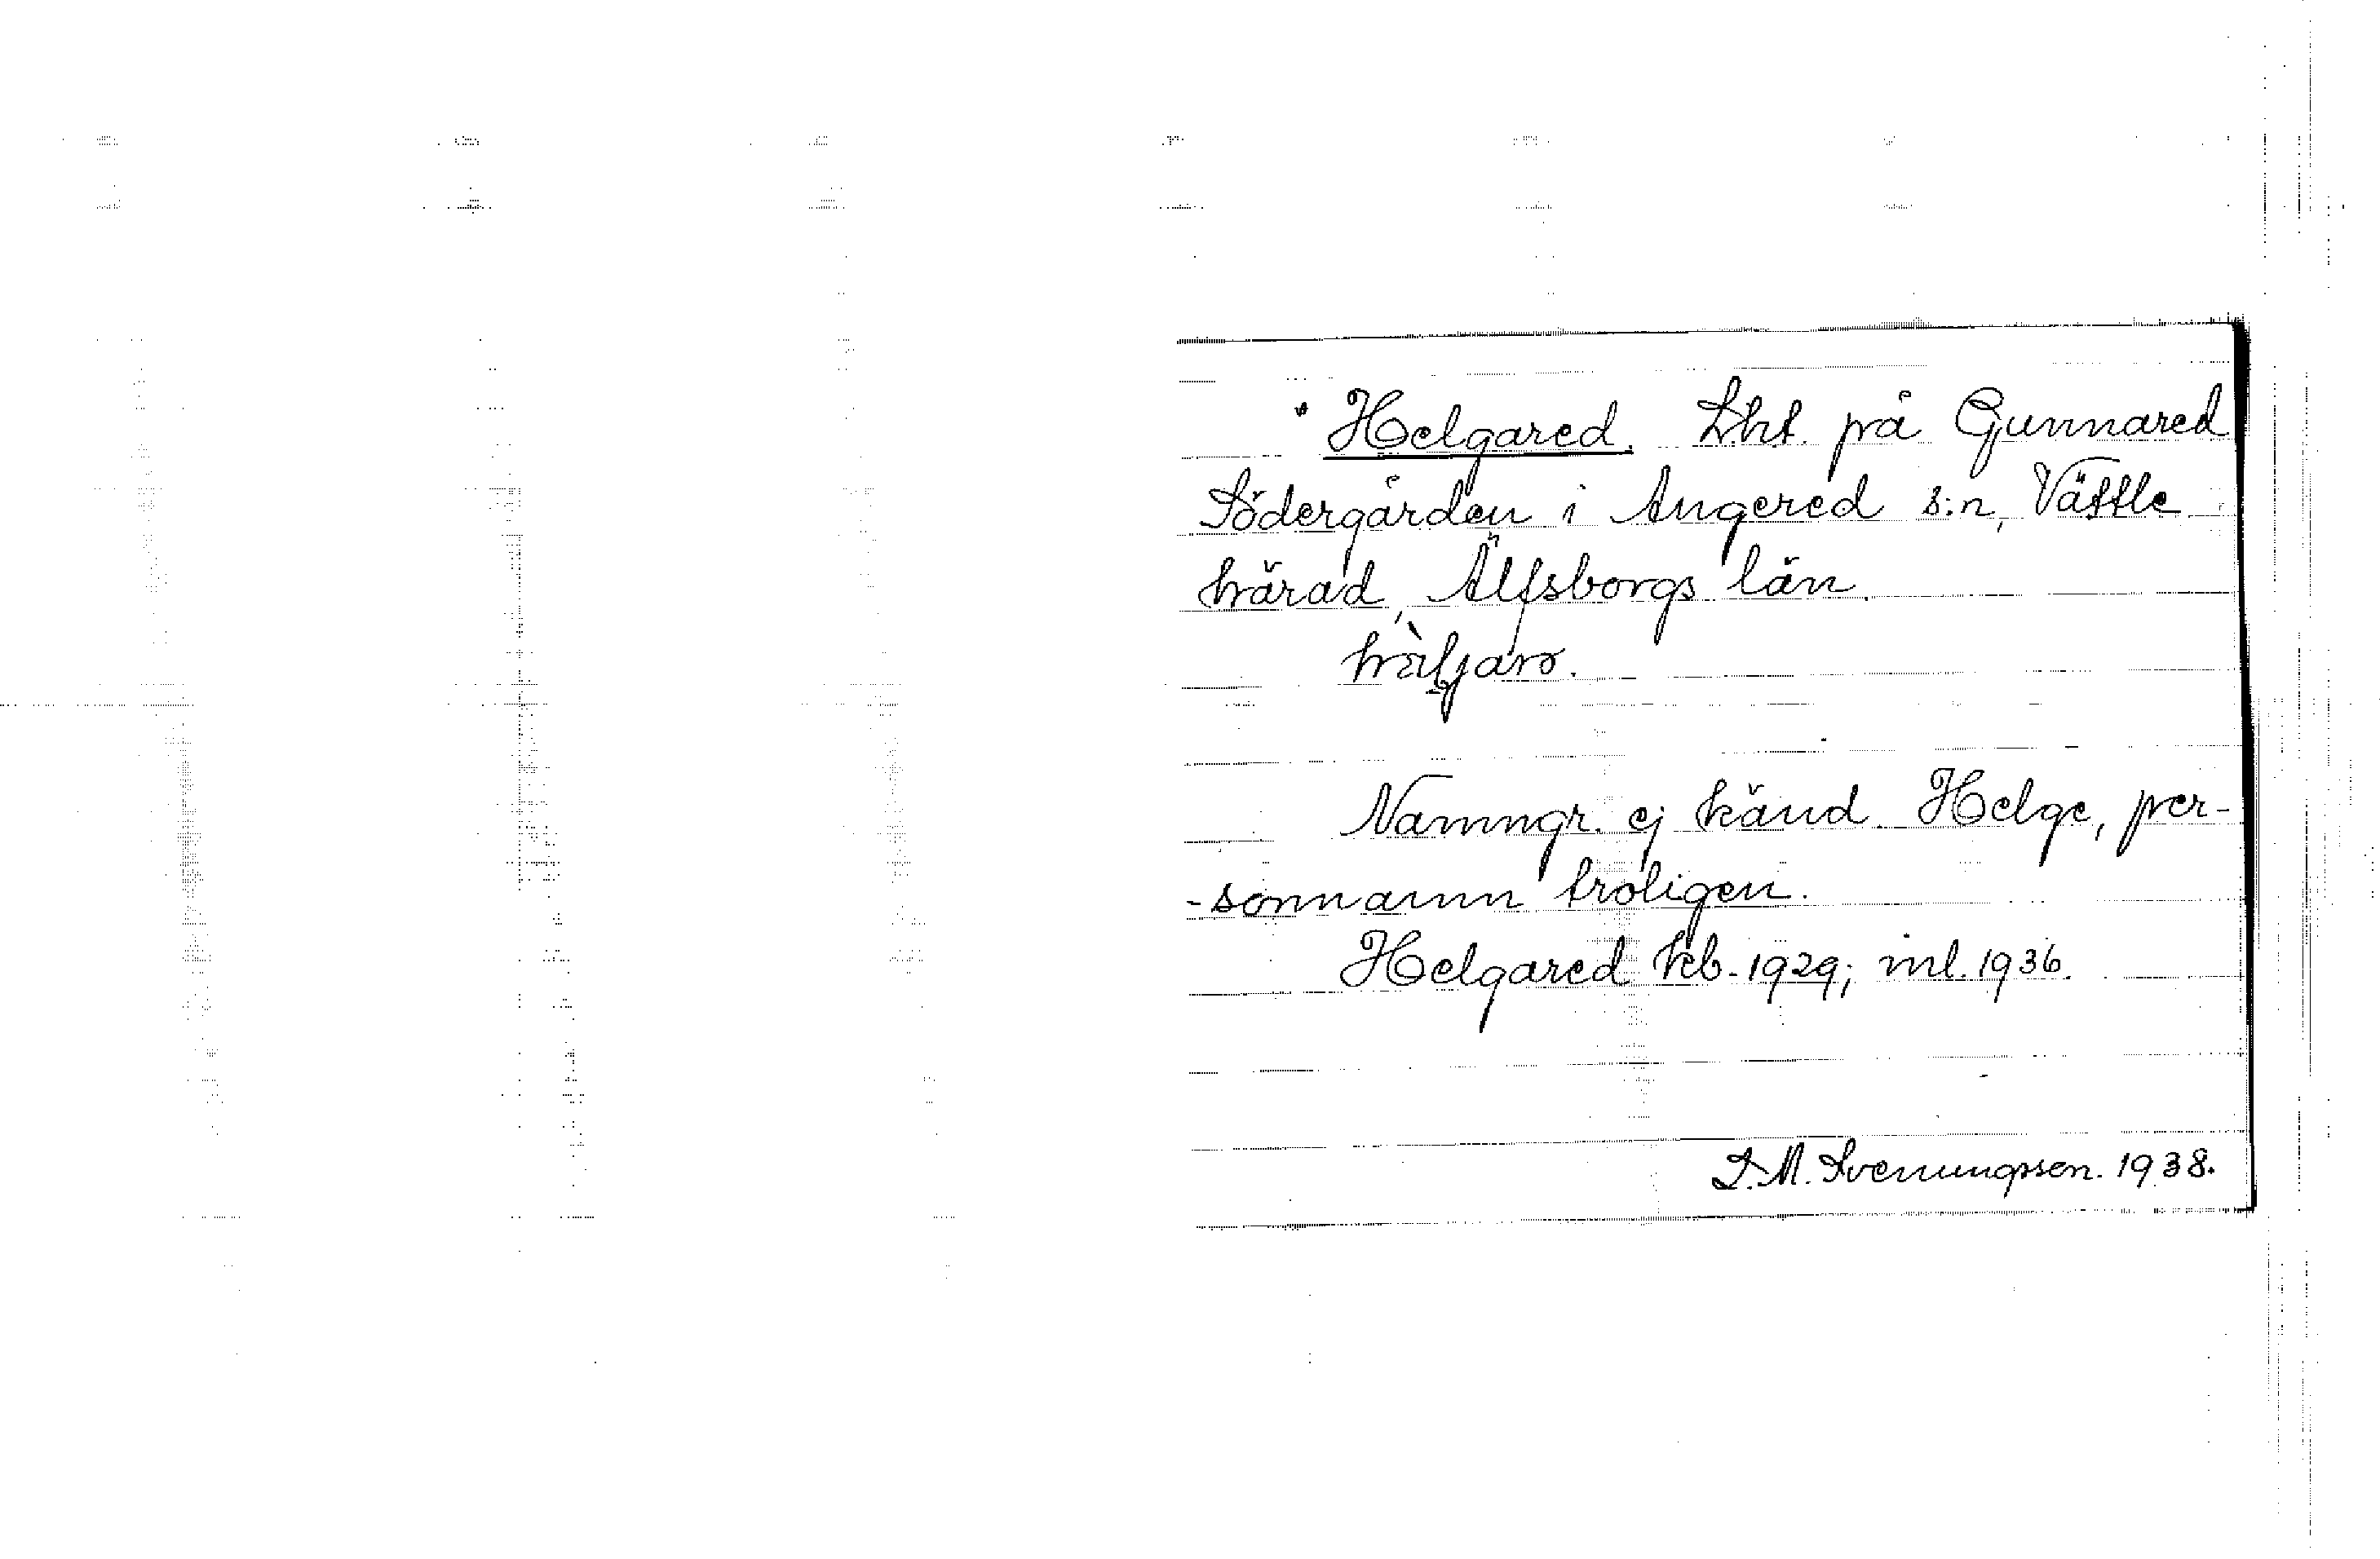 Helgared. Lht. på Gunnared
Södergården i Angered s:n, Vättle
härad, Älfsborgs län.
Namngr. ej känd. Helge, per-
-sonnamn troligen.
Helgared kb. 1929; ml. 1936.
I. M. Svenungsson. 1938.